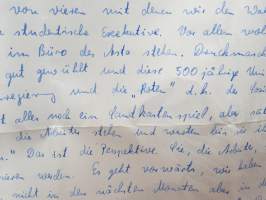 von diesen mit denen wir den Wa
studentische Exekutive. Vor allem wol
im Büro des Asta stehen. Denckmasch
gut gewühlt und diese 500 jährige Uni
regierung und die „Roten" d.h. die Sozi
alles noch ein Landkartenspiel, aber spä
die Arbeiter stehen und werden die
." Das ist die Perspektive. Sie, die Arbeiter,
ieren werden. Es geht vorwärts, wir haben
nicht in den nächsten Monaten aber in d